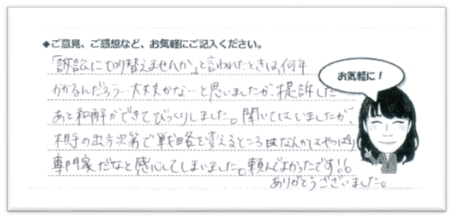 ◆ご意見、ご感想など、お気軽にご記入ください。
「訴訟に切り替えませんか」と言われたときは、何年
かかるんだろう…大丈夫かな…と思いましたが、提訴した
あと和解ができてびっくりしました。聞いてはいましたが、
相手の出方次第で戦略を変えるところはなんかはやっぱり
専門家だなと感心してしまいました。頼んでよかったです!!
ありがとうございました。
お気軽に!